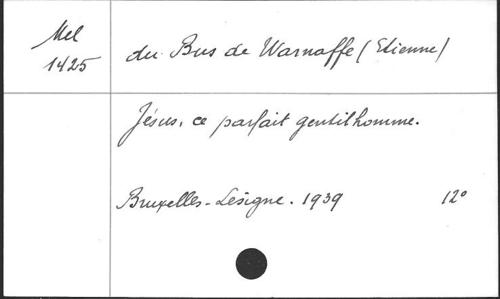 Mel
1425
du Bus de Warnaffe (Etienne)
Jésus, ce parfait gentilhomme.
Bruxelles - Lésigne. 1939 12°